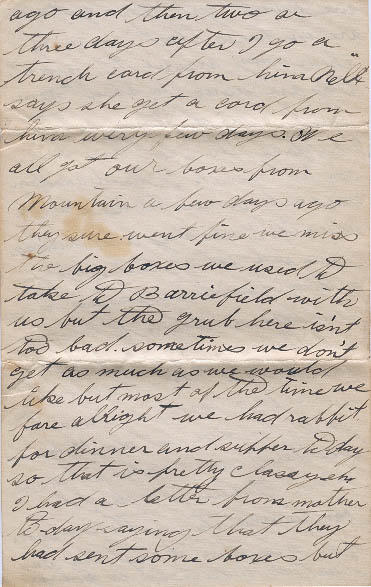 ago and then two or
three days after I go a
trench card from him Nell
says she get a card from
him every few days. We
all got our boxes from
Mountain a few days ago
they sure went fine we miss
the big boxes we used to
take to Barriefield with
us but the grub here isn't
too bad. sometimes we don't
get as much as we would
like but most of the time we
fare alright we had rabbit
for dinner and supper to day
so that is pretty classy eh
I had a letter from mother
to-day saying that they
had sent some boxes but